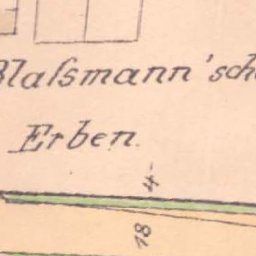 Blaſsmann'sch
Erben.
4
18